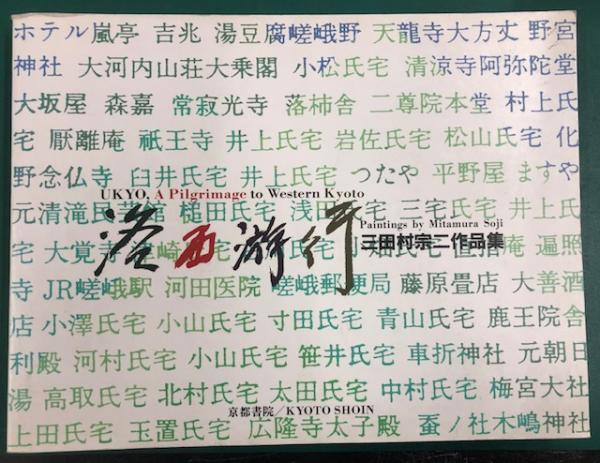 ホテル嵐亭 吉兆 湯豆腐嵯峨野 天龍寺大方丈 野宮
神社 大河内山荘大乗閣 小松氏宅 清涼寺阿弥陀堂
大坂屋 森嘉 常寂光寺 落柿舎 二尊院本堂 村上氏
宅 厭離庵 祇王寺 井上氏宅 岩佐氏宅 松山氏宅 化
野念仏寺 臼井氏宅 井上氏宅 つたや 平野屋 ますや
UKYO, A Pilgrimage to Western Kyoto
元清滝 館 槌田氏宅 浅田 宅 三宅氏宅 井上
洛西游行
Paintings by Mitamura Soji
三田村宗二作品集
宅 大覚寺 崎 氏 庵 遍照
寺 JR嵯峨駅 河田医院 嵯峨郵便局 藤原畳店 大善酒
店 小澤氏宅 小山氏宅 寸田氏宅 青山氏宅 鹿王院舎
利殿 河村氏宅 小山氏宅 笹井氏宅 車折神社 元朝日
湯 高取氏宅 北村氏宅 太田氏宅 中村氏宅 梅宮大社
京都書院/KYOTO SHOIN
上田氏宅 玉置氏宅 広隆寺太子殿 蚕ノ社木嶋神社